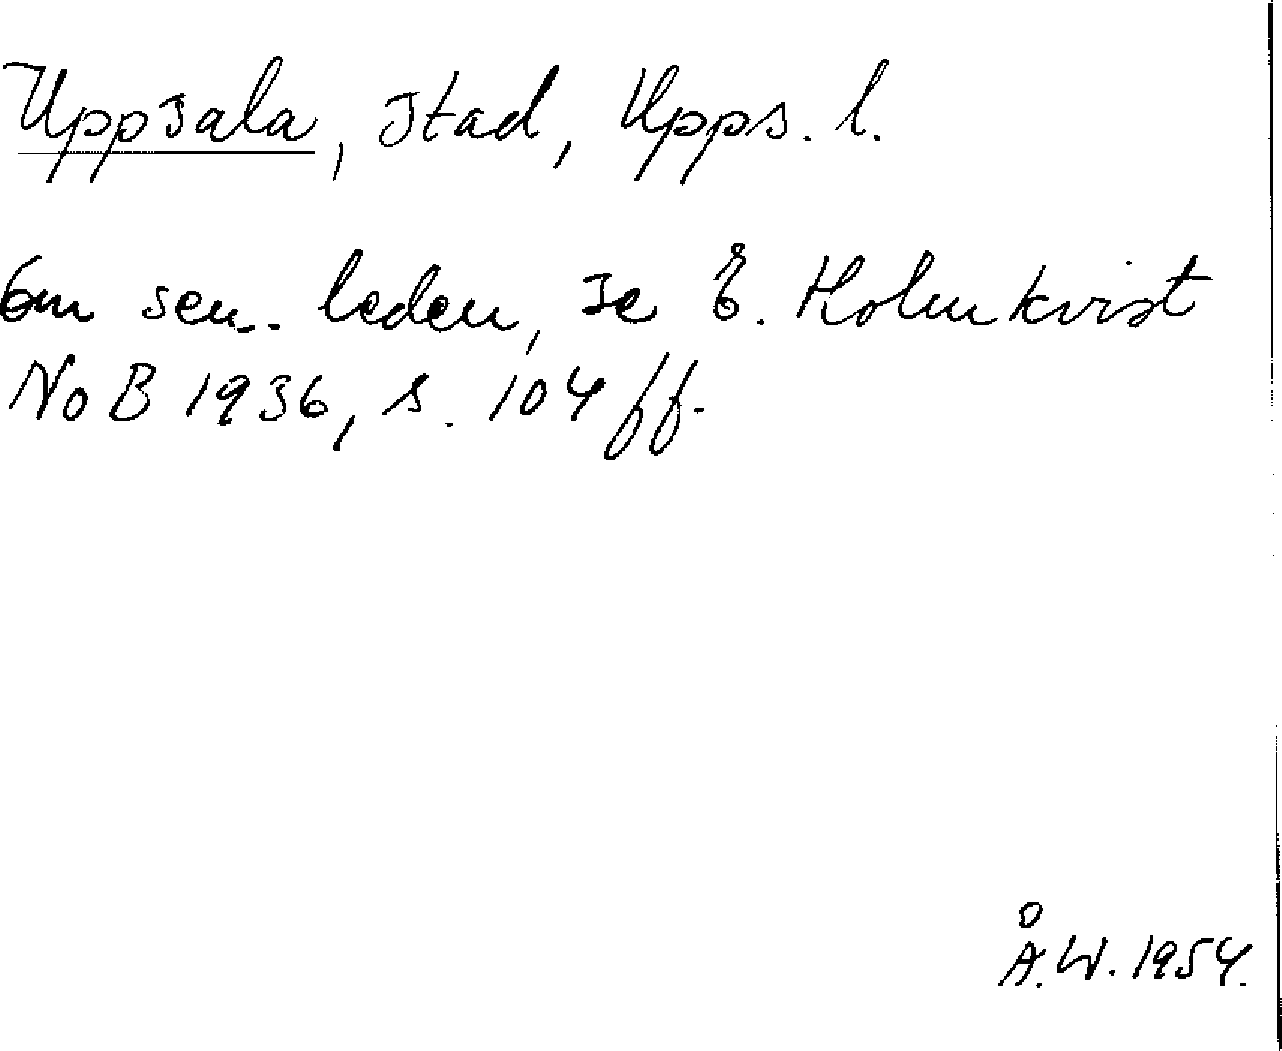 Uppsala, stad, Upps. l.
Om sen. leden, se E. Holmkvist
NoB 1936, s. 104 ff.
Å.W. 1954.